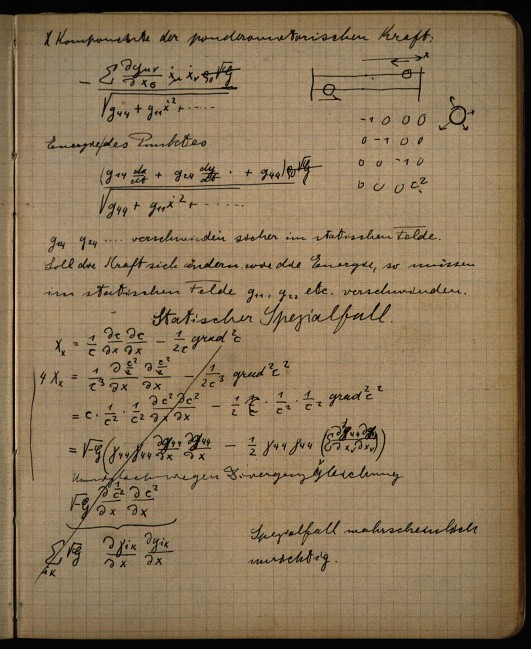 X Komponente der ponderomotorischen Kraft:
- Σ ∂gμν/∂xσ ẋμ ẋν √G
√(g44 + g11 ẋ² + ·····)
x
-1 0 0 0
0 -1 0 0
0 0 -1 0
0 0 0 c²
Energie des Punktes
(g14 dx/dt + g24 dy/dt · + g44) √G
√(g44 + g11 ẋ² + ······)
g14 g24 .... verschwinden sicher im statischen Felde.
Soll die Kraft sich ändern wie die Energie, so müssen
im statischen Felde g11, g22 etc. verschwinden.
Statischer Spezialfall.
Xx = 1/c ∂c/∂x ∂c/∂x - 1/2c grad²c
4 Xx = 1/c³ ∂c²/∂x ∂c²/∂x - 1/2c³ grad²c²
= c · 1/c² · 1/c² ∂c²/∂x ∂c²/∂x - 1/2 c · 1/c² · 1/c² grad²c²
= √G (γ44 γ44 ∂g44/∂x ∂g44/∂x - 1/2 γ44 γ44 (
wegen Divergenzgleichung
√G ∂ 1/c²/∂x ∂c²/∂x
Σ √G ∂γik/∂x ∂gik/∂x
ik
Spezialfall wahrscheinlich
unrichtig.